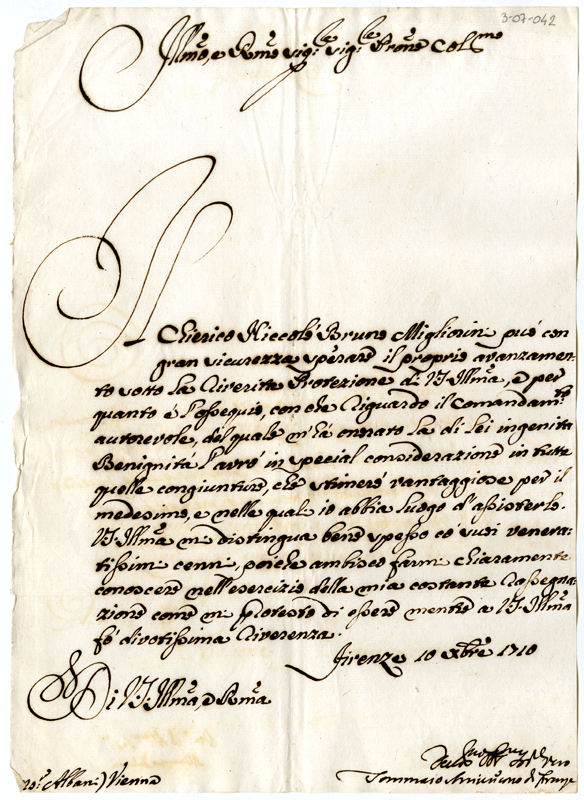 3-07-042
Illmo, e Rmo Sigle Sigle Prone Colmo
Il Chierico Niccolò Bruno Migliorini può con
gran sicurezza sperare il proprio avanzamen-
to sotto la riverita Protezione di V.S. Illma, e per
quanto è l'ossequio, con che riguardo il comandamto
autorevole, del quale m'hà onorato la di Lei ingenita
Benignità l'avrò in special considerazione in tutte
quelle congiunture, che stimerò vantaggiose per il
medesimo, e nelle quali io abbia luogo d'assisterlo.
V.S. Illma mi distingua bene spesso co' suoi venera-
tissimi cenni, poiche ambisco farmi chiaramente
conoscere nell'esercizio della mia costante rassegna-
zione come mi protesto di essere mentre a V.S. Illma
fò divotissima riverenza.
Firenze 10 Xbre 1710
Di V.S. Illma, e Rma
Tommaso di Firenze
Albani) Vienna